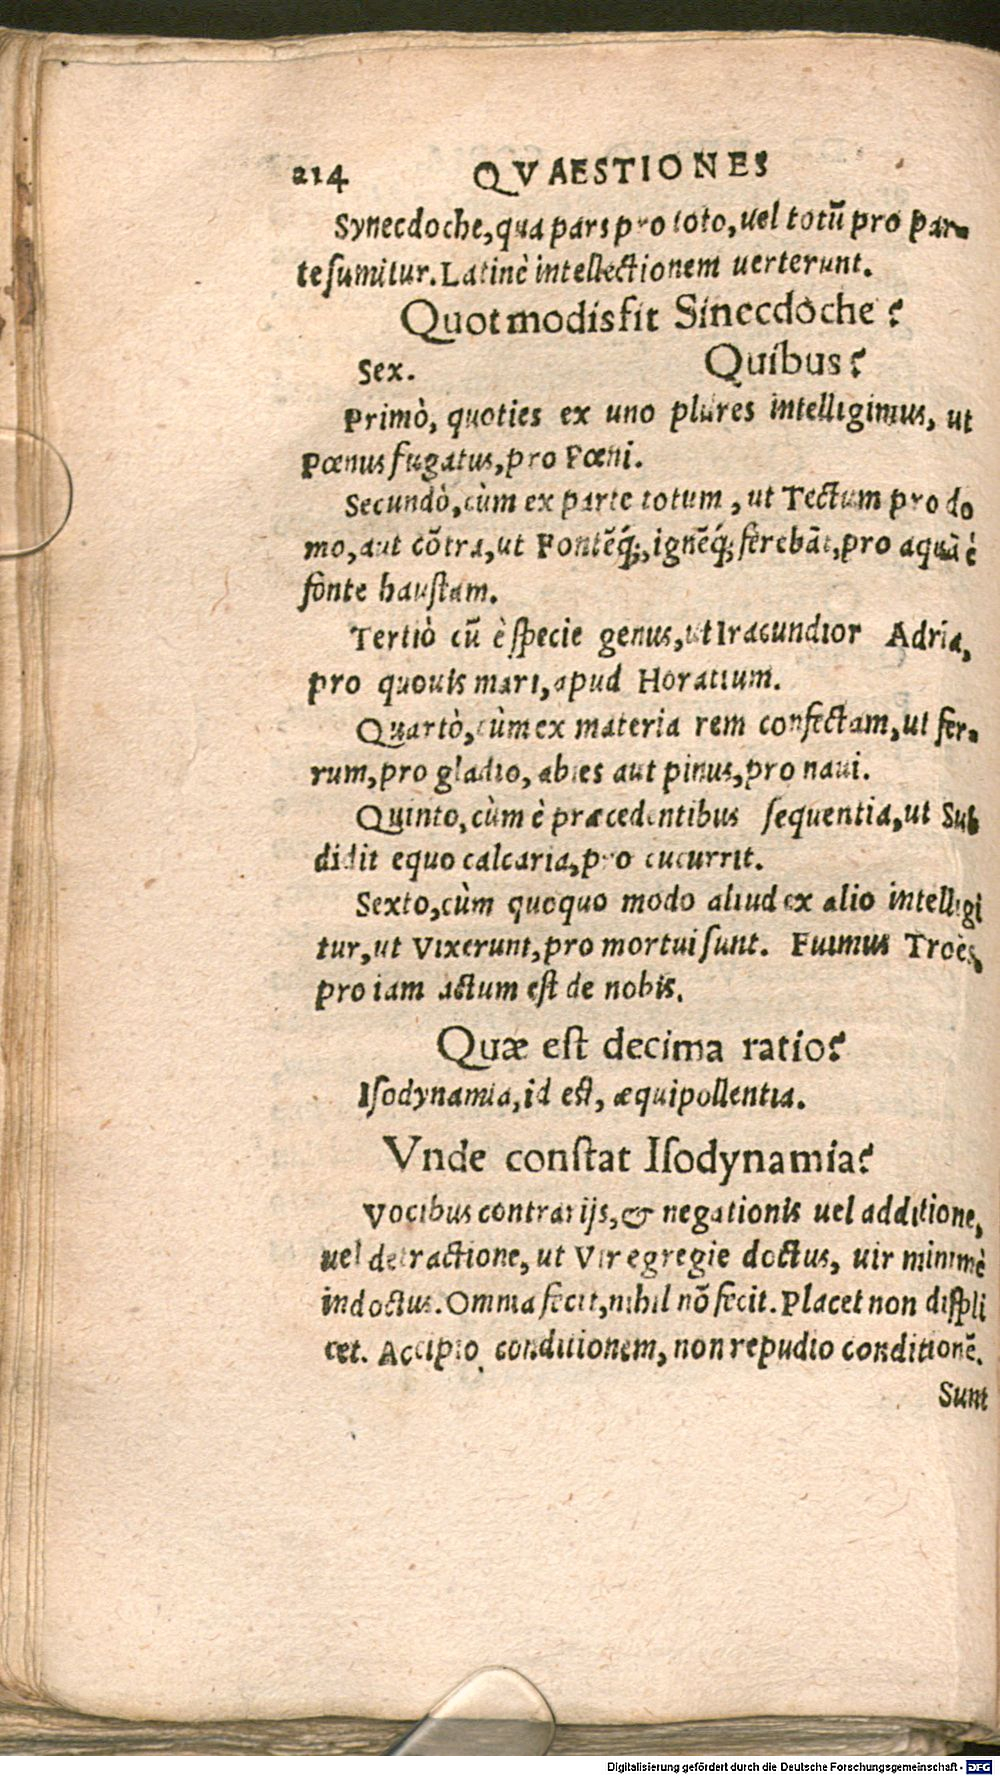 214 QVAESTIONES
Synecdoche, qua pars pro toto, uel totũ pro par-
te sumitur. Latinè intellectionem uerterunt.
Quot modis fit Sinecdoche?
Sex. Quibus?
Primò, quoties ex uno plures intelligimus, ut
Pœnus fugatus, pro Pœni.
Secundò, cùm ex parte totum, ut Tectum pro do
mo, aut cõtra, ut Fontẽq́;, ignẽq́; ferebãt, pro aquã è
fonte haustam.
Tertiò cũ è specie genus, ut Iracundior Adria,
pro quouis mari, apud Horatium.
Quartò, cùm ex materia rem confectam, ut fer-
rum, pro gladio, abies aut pinus, pro naui.
Quinto, cùm è præcedentibus sequentia, ut Sub
didit equo calcaria, pro cucurrit.
Sexto, cùm quoquo modo aliud ex alio intelligi
tur, ut Vixerunt, pro mortui sunt. Fuimus Troes,
pro iam actum est de nobis.
Quæ est decima ratio?
Isodynamia, id est, æquipollentia.
Vnde constat Isodynamia?
Vocibus contrarijs, & negationis uel additione,
uel detractione, ut Vir egregie doctus, uir minimè
indoctus. Omnia fecit, nihil nõ fecit. Placet non displi
cet. Accipio conditionem, non repudio conditionẽ.
Sunt
Digitalisierung gefördert durch die Deutsche Forschungsgemeinschaft - DFG